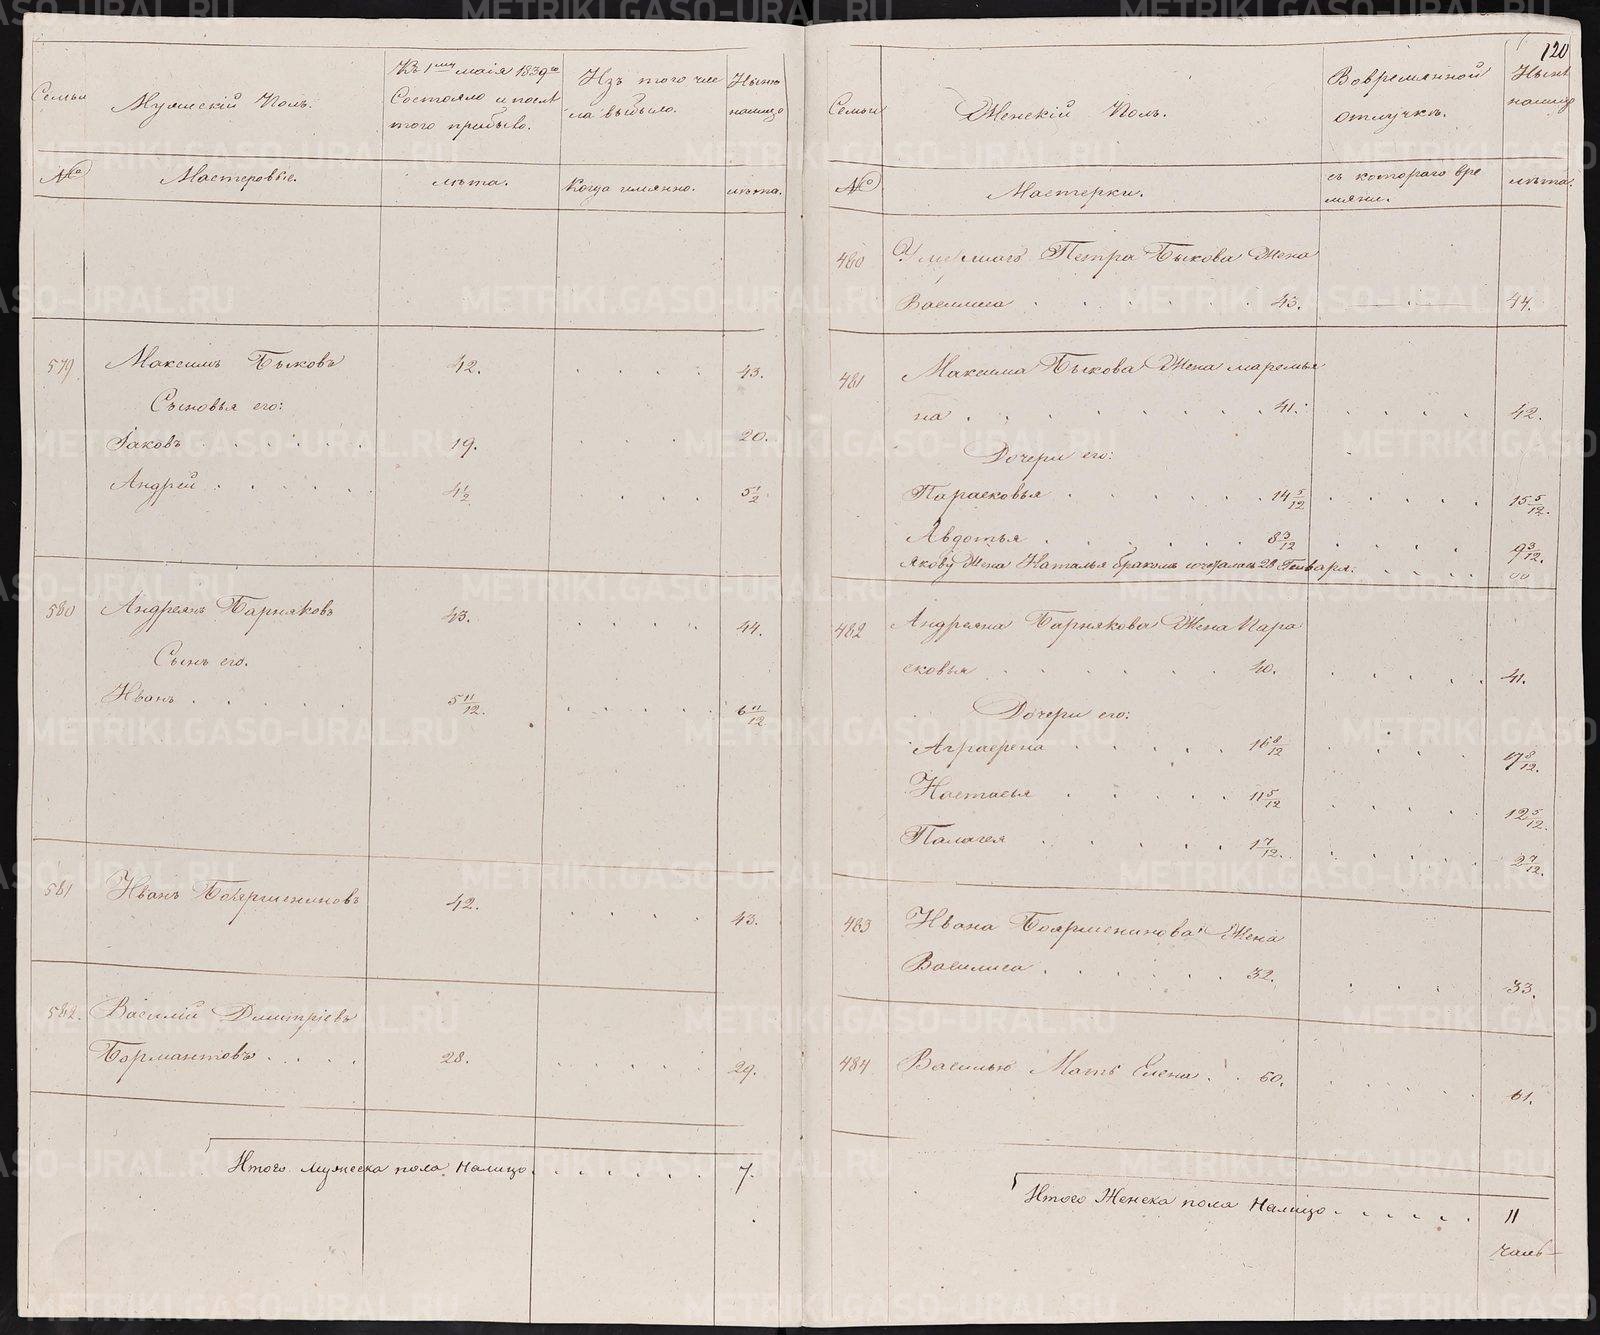 120
Семьи
Мужескій Полъ.
Къ 1му маія 1839го
Состояло и послѣ
того прибыло.
Изъ того чис
ла выбыло.
Нынѣ
налицо
№
Мастеровые.
лѣта.
Когда имянно.
лѣта.
579
Максимъ Быковъ
42.
43.
Сыновья его:
Іаковъ
19.
20.
Андрей
4 1/2
5 1/2
580
Андреянъ Барняковъ
43.
44.
Сынъ его.
Иванъ
5 11/12.
6 11/12
581
Иванъ Бояршениновъ
42.
43.
582.
Василій Дмитріевъ
Бормантовъ
28.
29.
Итого мужеска пола налицо
7.
Семьи
Женскій Полъ.
Вовремянной
отлучкѣ.
Нынѣ
налицо
№
Мастерки.
съ котораго вре
мяни.
лѣта.
480
Умершаго Петра Быкова Жена
Василиса
43.
44.
481
Максима Быкова Жена маремья
на
41.
42.
Дочери его:
Парасковья
14 5/12
15 5/12.
Авдотья
8 3/12
9 3/12.
Якову Жена Наталья бракомъ сочеталась 28 Генваря.
00
482
Андреяна Барнякова Жена Пара
сковья
40.
41.
Дочери его:
Аграфена
16 8/12
17 8/12.
Настасья
11 5/12
12 5/12.
Палагея
1 7/12.
2 7/12.
483
Ивана Бояршенинова Жена
Василиса
32.
33.
484
Василью Мать Елена
60.
61.
Итого Женска пола Налицо
11